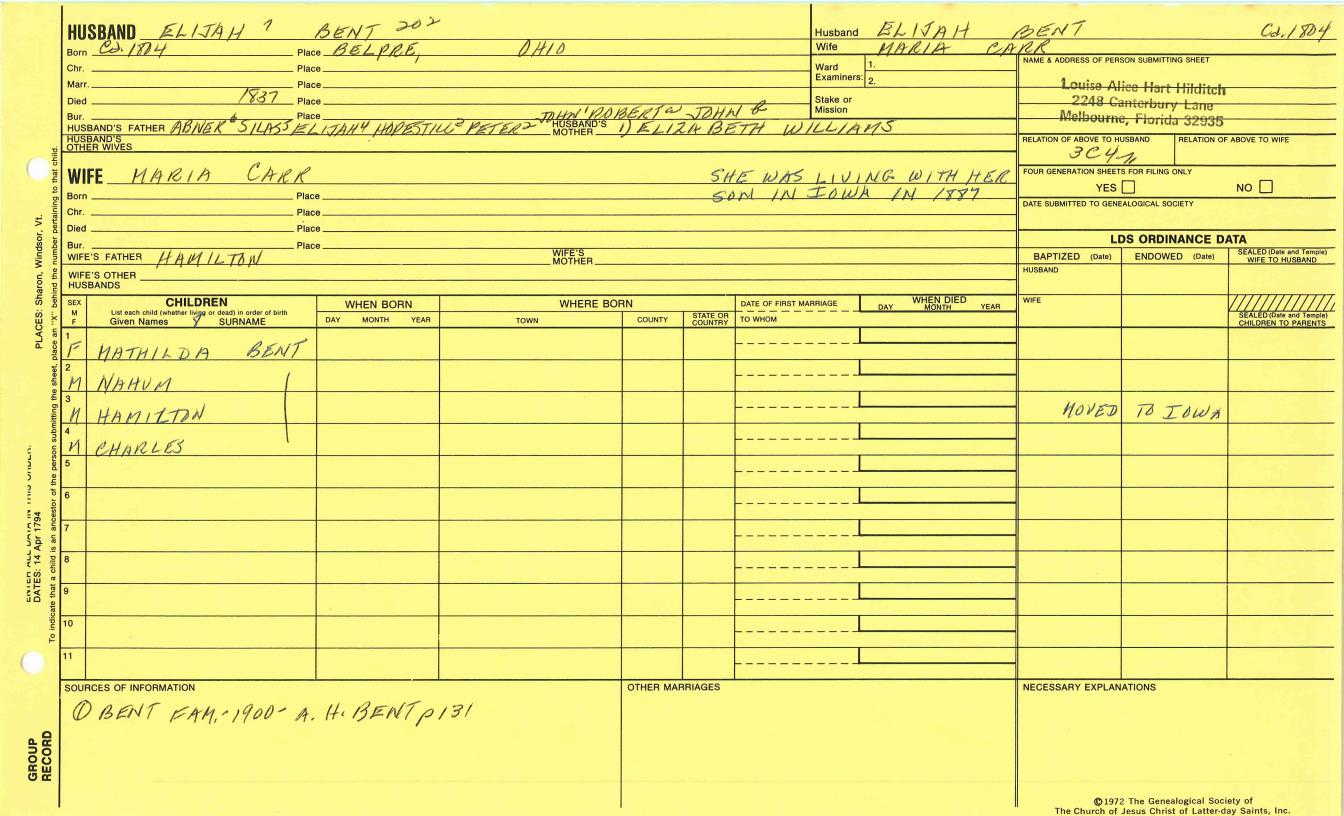 HUSBAND ELIJAH 7 BENT 202
Born Ca. 1804 Place BELPRE, OHIO
Chr. Place
Marr. Place
Died 1837 Place
Bur. Place
JOHN' ROBERT JOHN
HUSBAND'S FATHER ABNER6 SILAS5 ELIJAH4 HOPESTILL3 PETER2 HUSBAND'S MOTHER 1) ELIZABETH WILLIAMS
HUSBAND'S OTHER WIVES
Husband ELIJAH BENT Ca. 1804
Wife MARIA CARR
Ward Examiners: 1.
2.
Stake or Mission
NAME & ADDRESS OF PERSON SUBMITTING SHEET
Louise Alice Hart Hilditch
2248 Canterbury Lane
Melbourne, Florida 32935
RELATION OF ABOVE TO HUSBAND RELATION OF ABOVE TO WIFE
3C4
FOUR GENERATION SHEETS FOR FILING ONLY
YES NO
DATE SUBMITTED TO GENEALOGICAL SOCIETY
WIFE MARIA CARR SHE WAS LIVING WITH HER
Born Place SON IN IOWA IN 1887
Chr. Place
Died Place
Bur. Place
WIFE'S FATHER HAMILTON WIFE'S MOTHER
WIFE'S OTHER HUSBANDS
LDS ORDINANCE DATA
BAPTIZED (Date) ENDOWED (Date) SEALED (Date and Temple) WIFE TO HUSBAND
HUSBAND
WIFE
SEALED (Date and Temple) CHILDREN TO PARENTS
SEX M F CHILDREN WHEN BORN WHERE BORN DATE OF FIRST MARRIAGE WHEN DIED
List each child (whether living or dead) in order of birth
Given Names SURNAME DAY MONTH YEAR TOWN COUNTY STATE OR COUNTRY TO WHOM DAY MONTH YEAR
1 F MATHILDA BENT
2 M NAHUM
3 M HAMILTON MOVED TO IOWA
4 M CHARLES
5
6
7
8
9
10
11
SOURCES OF INFORMATION
① BENT FAM.-1900- A. H. BENT p 131
OTHER MARRIAGES
NECESSARY EXPLANATIONS
©1972 The Genealogical Society of
The Church of Jesus Christ of Latter-day Saints, Inc.
PLACES: Sharon, Windsor, Vt.
To indicate that a child is an ancestor of the person submitting the sheet, place an "X" behind the number pertaining to that child.
ENTER ALL DATA IN THIS ORDER:
DATES: 14 Apr 1794
GROUP RECORD